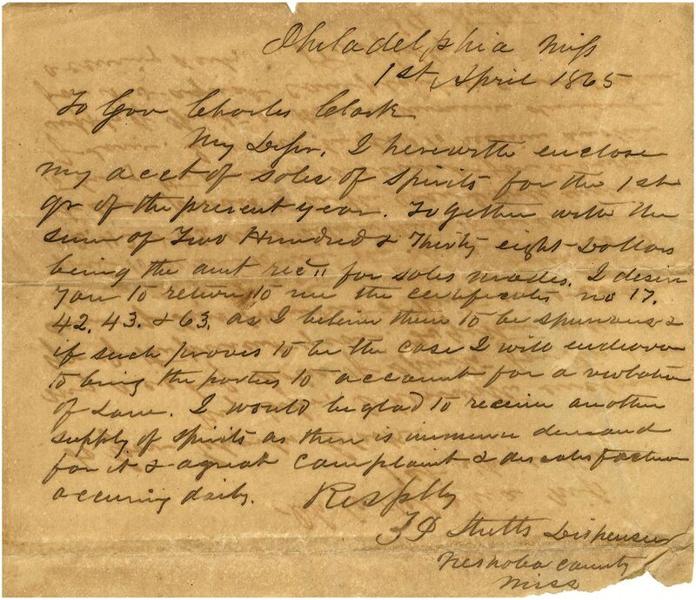 Philadelphia Miss
1st April 1865
To Gov Charles Clark
My D Sir, I herewith enclose
my acct of sales of spirits for the 1st
qr of the present year. Together with the
sum of Two Hundred & Thirty eight Dollars
being the amt rec'' for sales made. I desire
you to return to me the certificates no 17.
42. 43. & 63. as I believe them to be spurious &
if such proves to be the case I will endeavor
to bring the parties to account for a violation
of Law. I would be glad to receive another
supply of spirits as there is immense demand
for it & a great complaint & dissatisfaction
occuring daily. Respftlly
Stutts Dispenser
Neshoba County
Miss